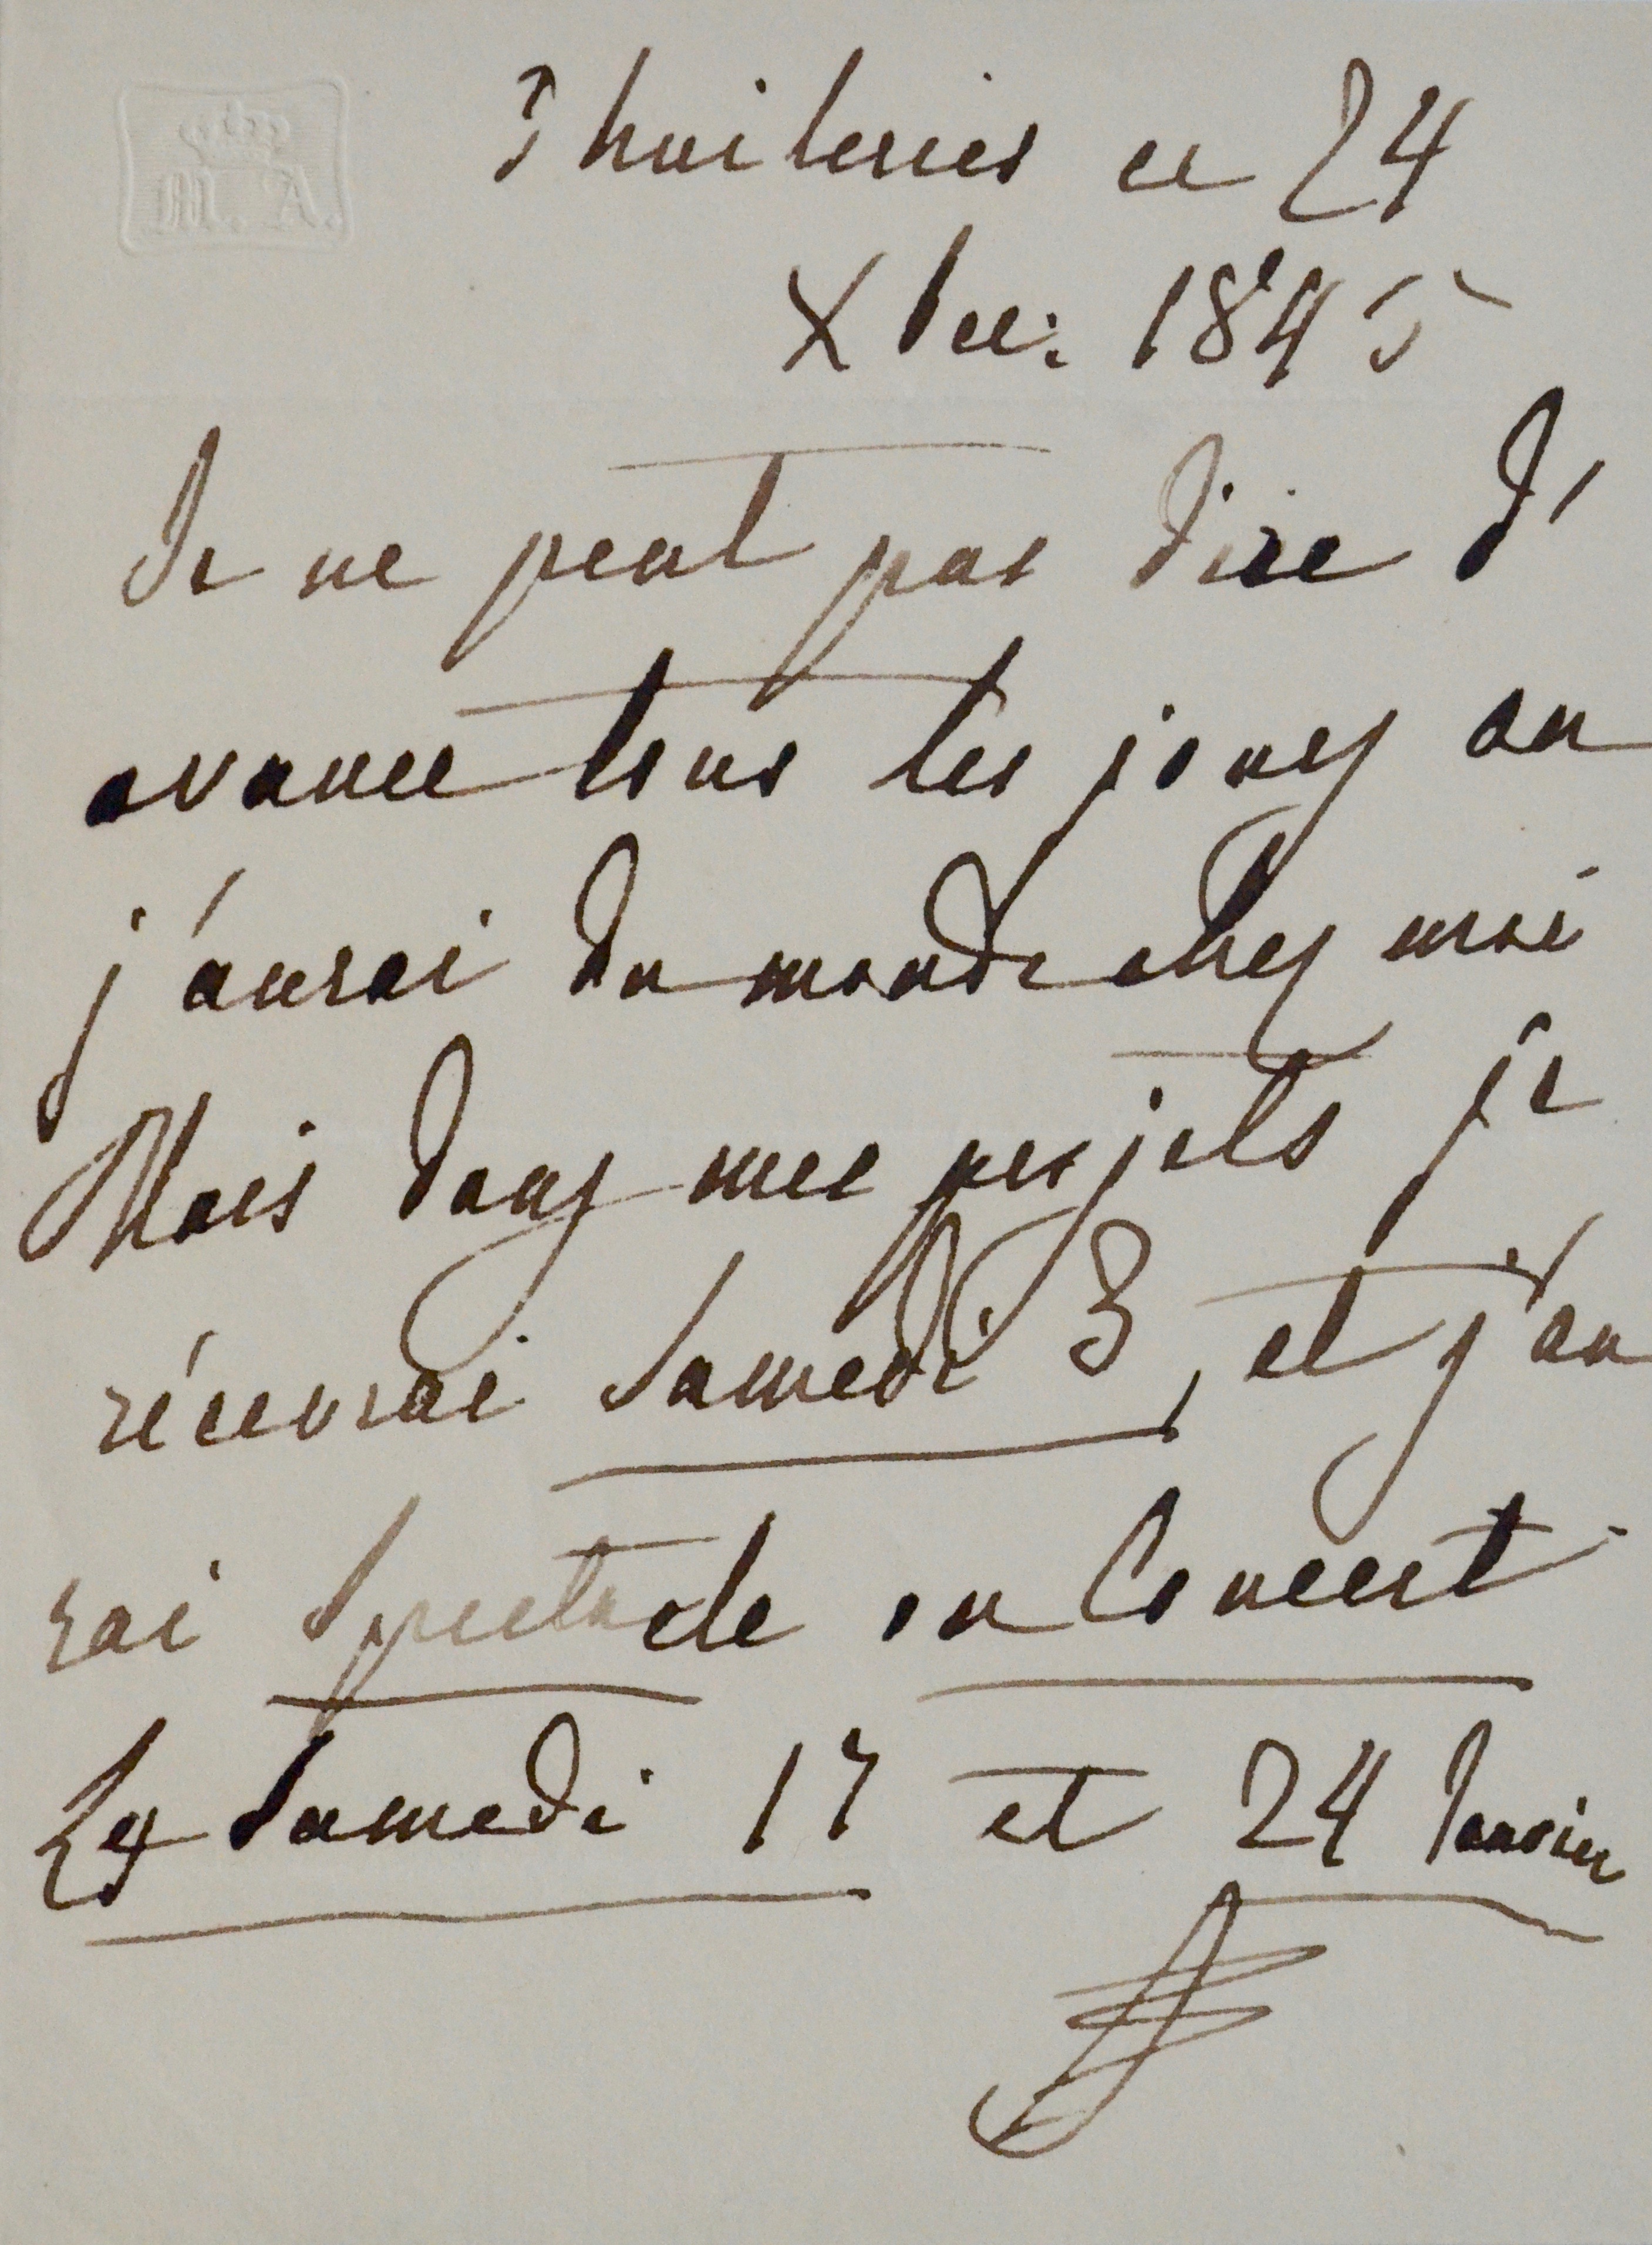 M. A.
Thuileries ce 24
Xbre: 1845
Je ne peut pas dire d'
avance tous les jours ou
j'aurai du monde chez moi
Mais dans mes projets je
récevrai Samedi 3, et j'au
rai Spectacle ou Concert
Les Samedi 17 et 24 Janvier